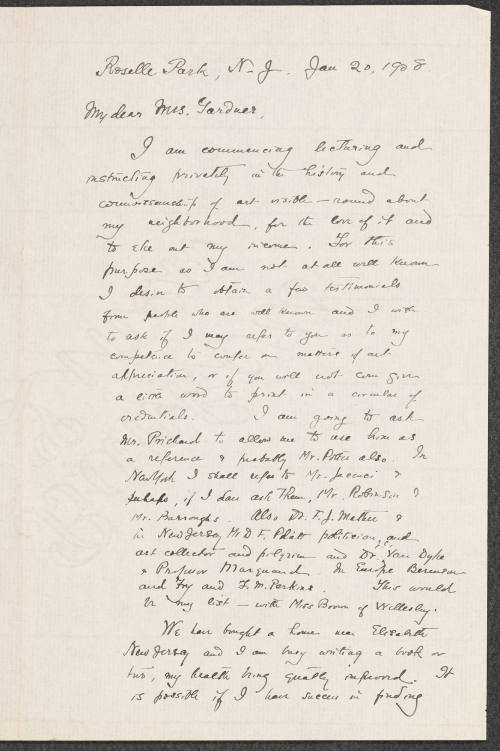 Roselle Park, N-J. Jan 20, 1908.
My dear Mrs. Gardner,
I am commencing lecturing and
instructing privately in the history and
connoisseurship of art visible - round about
my neighborhood, for the love of it and
to eke out my income. For this
purpose as I am not at all well known
I desire to obtain a few testimonials
from people who are well known and I wish
to ask if I may refer to you as to my
competence to confer on matters of art
appreciation, or if you will not even give
a little word to print in a circular of
credentials. I am going to ask
Mr. Prichard to allow me to use him as
a reference & probably Mr. Potter also. In
New York I shall refer to Mr. Jaccaci &
perhaps, if I dare ask them, Mr. Robinson &
Mr. Burroughs. Also Dr. F. J. Mather &
in New Jersey Mr D. F. Platt politician, and
art collector and pilgrim and Dr Van Dyke
& Professor Marquand. In Europe Berenson
and Fry and F. M. Perkins. This would
be my list - with Miss Brown of Wellesley.
We have bought a home near Elizabeth
New Jersey and I am busy writing a book or
two, my health being greatly improved. It
is possible if I have success in finding